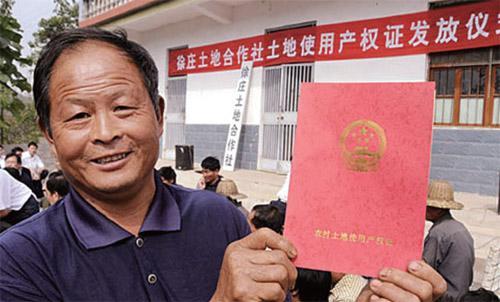 徐庄土地合作社土地使用产权证发放仪
徐庄土地合作社
农村土地使用产权证